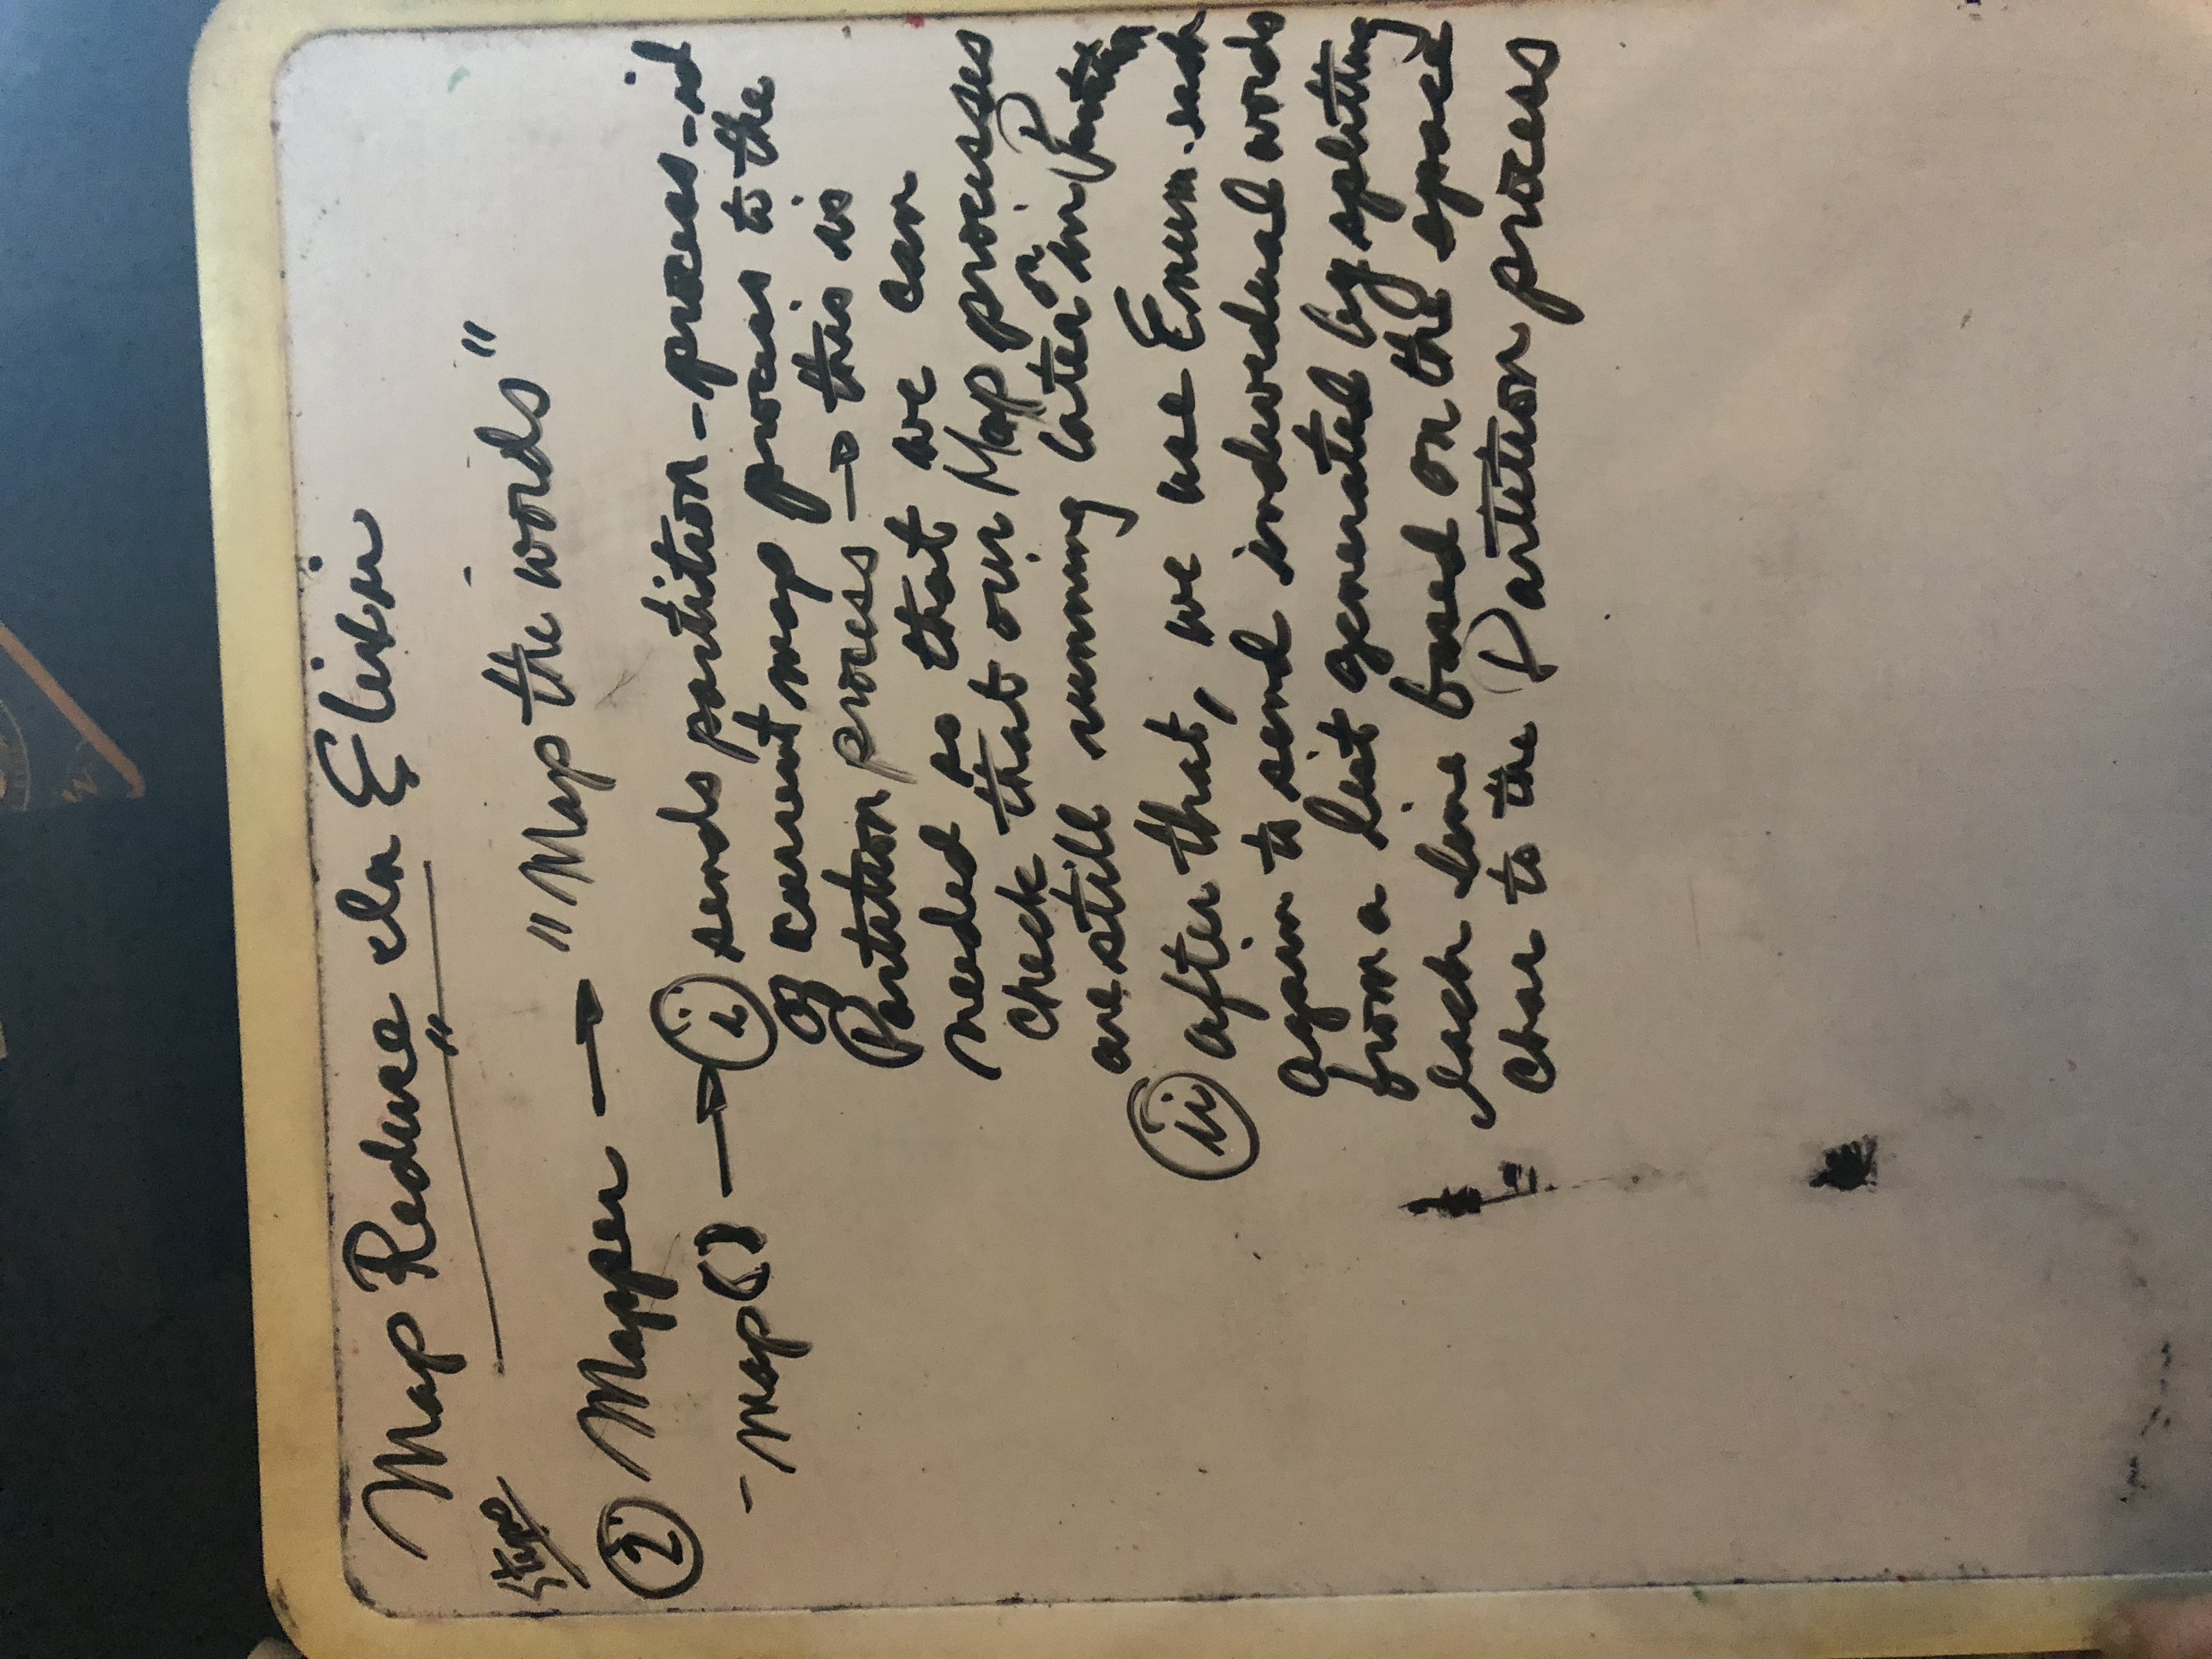 Map Reduce In Elixir
"
Steps
② Mapper → "Map the words"
- map() → ⓘ sends partition-process-id
of current map process to the
Partition process → this is
needed so that we can
check that our Map processes
are still running later on in Partition
ⓘⓘ after that, we use Enum.each
again to send individual words
from a list generated by splitting
each line based on the space
char to the Partition process